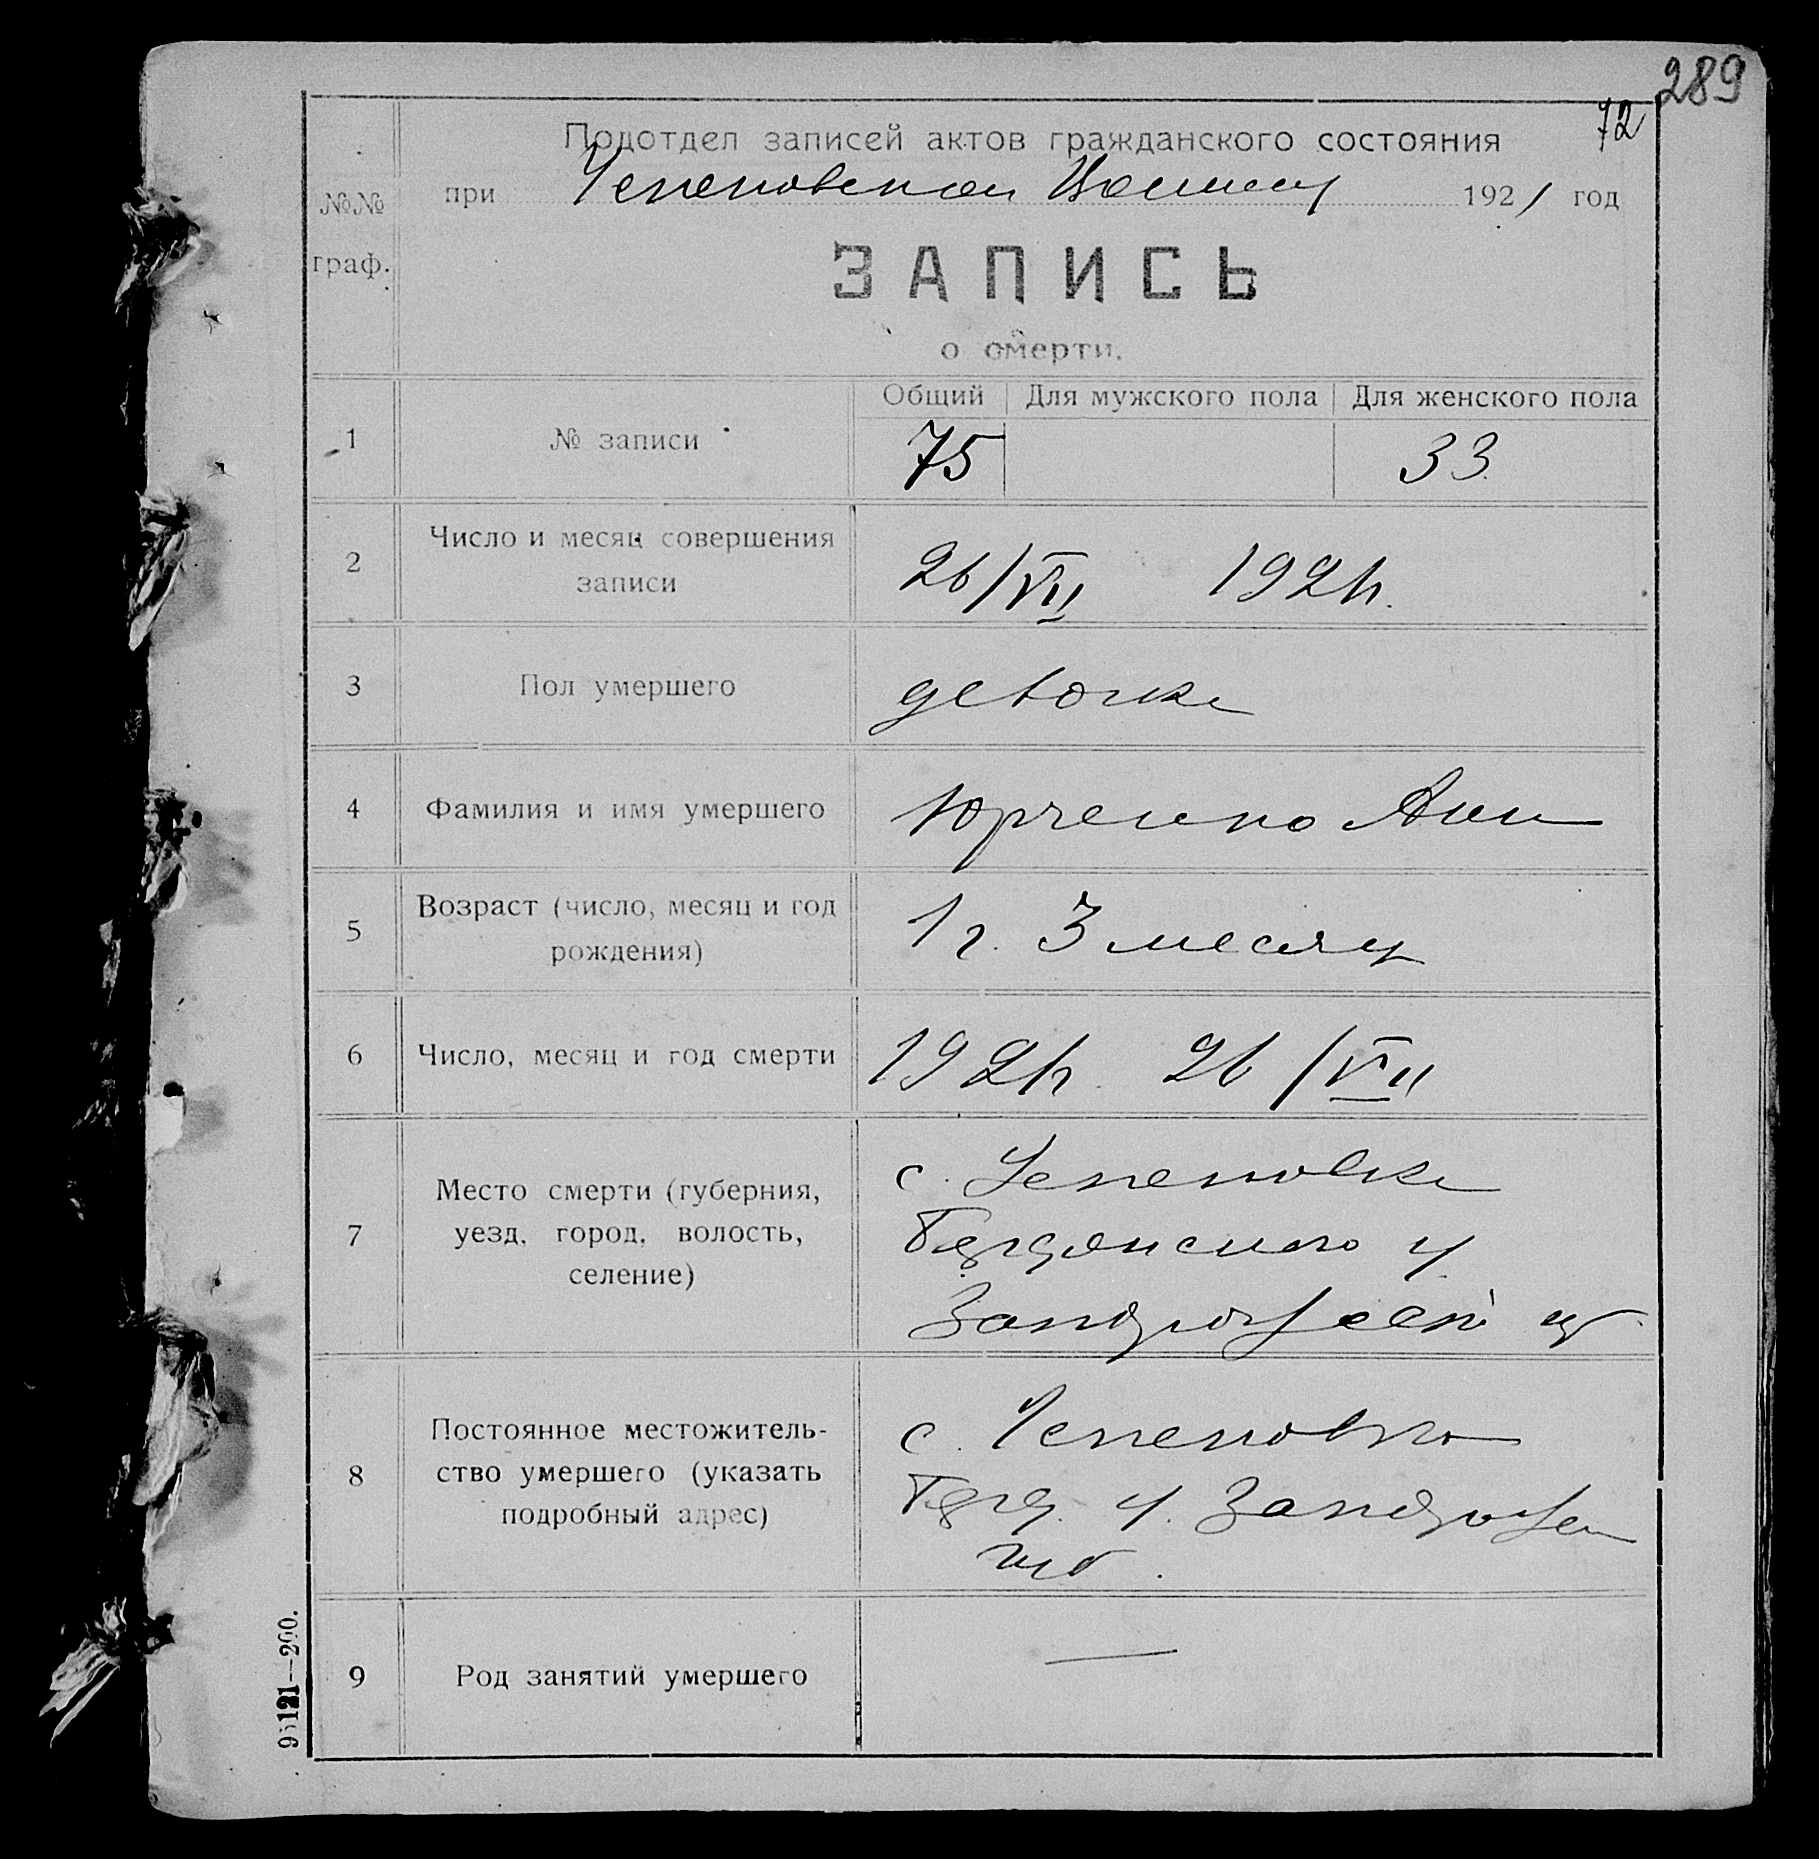 289
72
Подотдел записей актов гражданского состояния
№№ граф.
при Чепеновской Волости 1921 год
ЗАПИСЬ
о смерти.
Общий Для мужского пола Для женского пола
1 № записи 75 33
2 Число и месяц совершения записи 26/VII 1921 г.
3 Пол умершего девочка
4 Фамилия и имя умершего Юрченко Анна
5 Возраст (число, месяц и год рождения) 1 г. 3 месяц
6 Число, месяц и год смерти 1921 г. 26/VII
7 Место смерти (губерния, уезд, город, волость, селение) с.
Бердянского у
Запорожской губ
8 Постоянное местожительство умершего (указать подробный адрес) с.
Берд. у. Запорожск
губ.
9 Род занятий умершего —